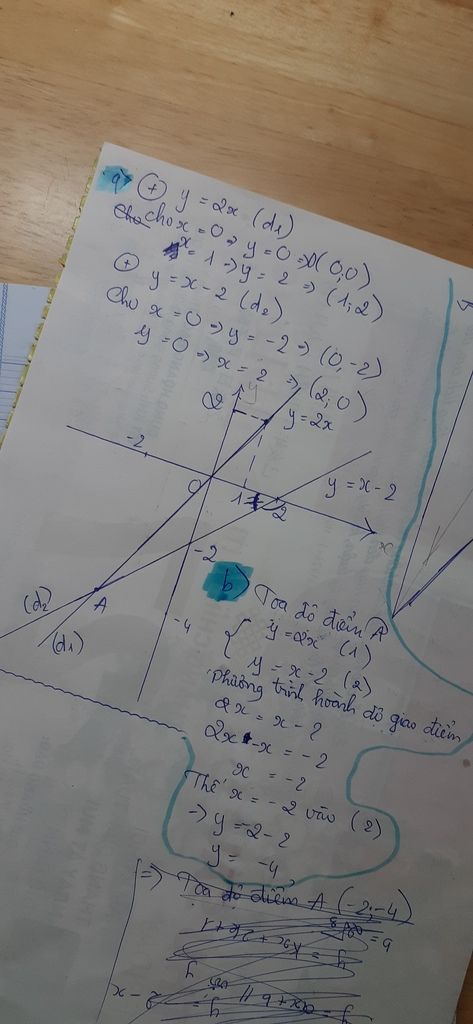 a) + y = 2x (d1)
cho x = 0 ⇒ y = 0 ⇒ (0,0)
x = 1 ⇒ y = 2 ⇒ (1;2)
+ y = x - 2 (d2)
Cho x = 0 ⇒ y = -2 ⇒ (0,-2)
y = 0 ⇒ x = 2 ⇒ (2;0)
y
2
y = 2x
-2
O
1
2
y = x - 2
x
-2
A
(d2)
(d1)
-4
b) Toạ độ điểm A
{ y = 2x (1)
y = x - 2 (2)
Phương trình hoành độ giao điểm
2x = x - 2
2x - x = -2
x = -2
Thế x = -2 vào (2)
⇒ y = -2 - 2
y = -4
⇒ Toạ độ điểm A (-2;-4)